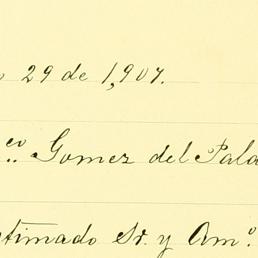 o 29 de 1,907.
co. Gomez del Pala
timado Sr. y Amo.